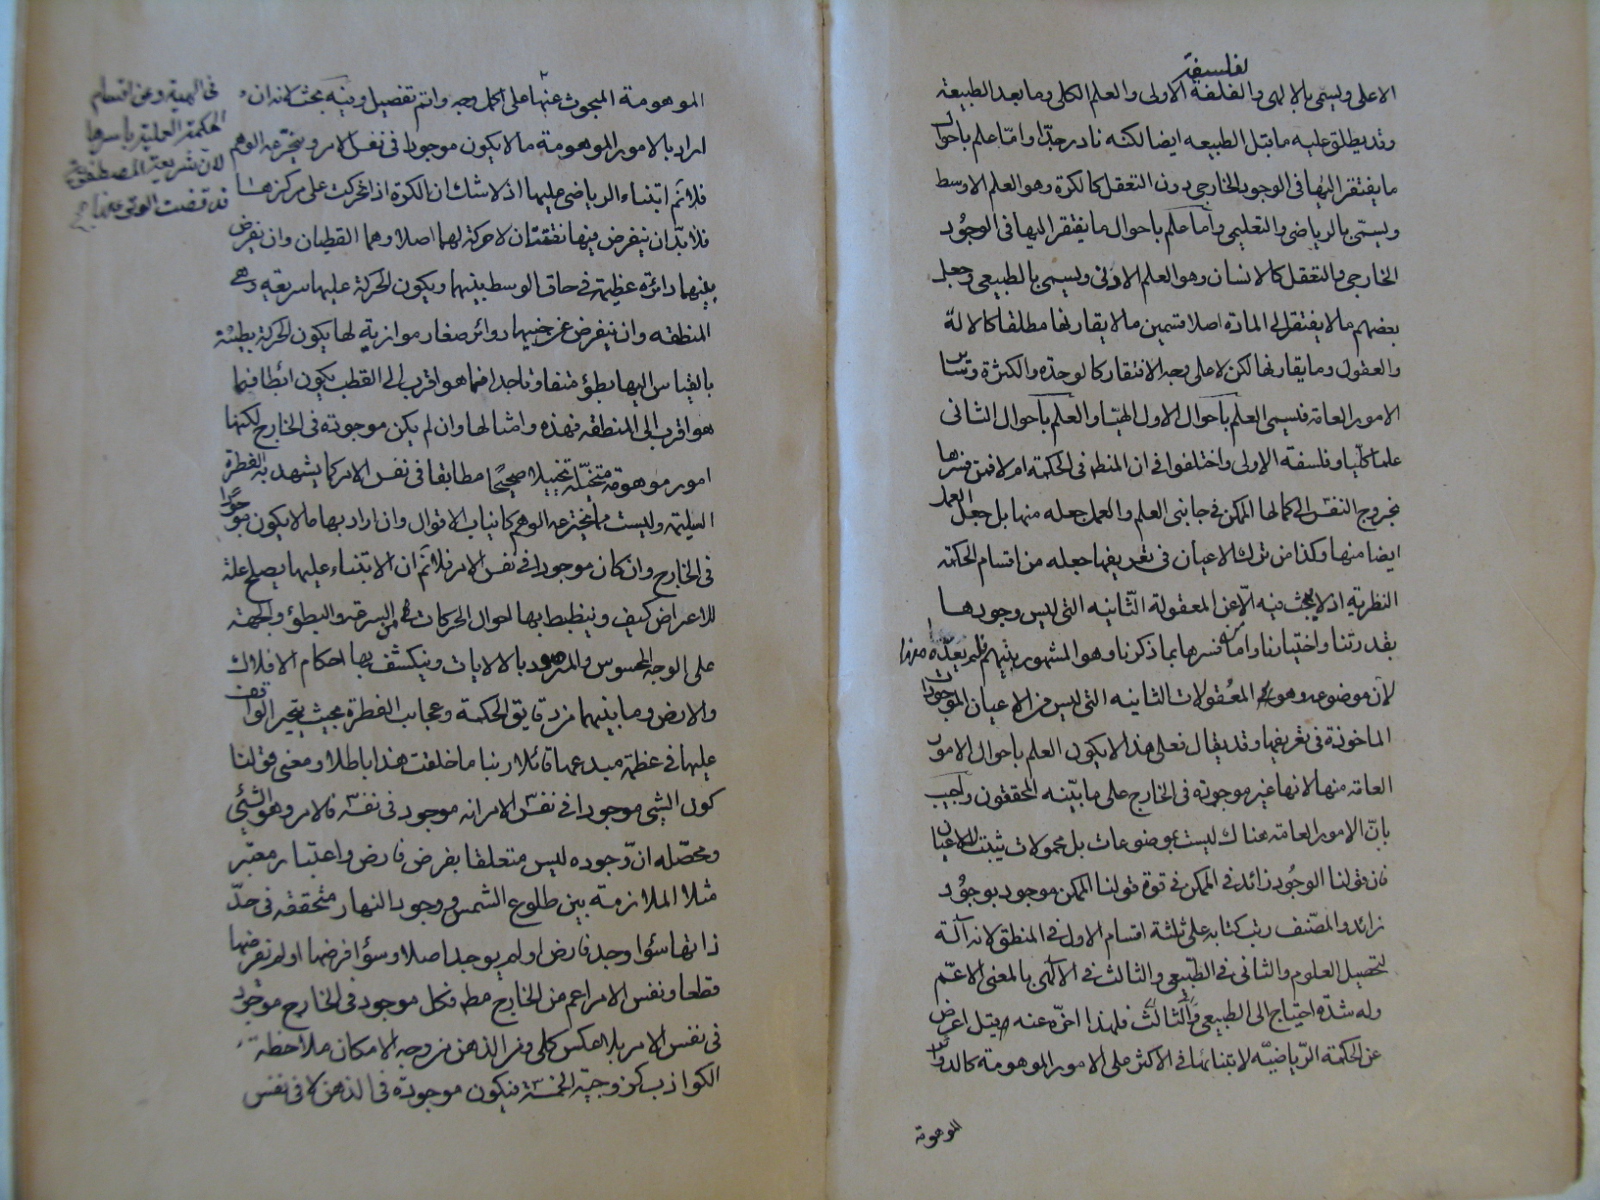 لفلسفة
الاعلى ويسمى بالالهى والفلسفة الاولى والعلم الكلى وما بعد الطبيعة
وقد يطلق عليه ما قبل الطبيعه ايضا لكنه نادر جدّا وامّا علم باحوال
ما يفتقر اليها فى الوجود الخارجى دون التعقل كالكرة وهو العلم الاوسط
ويسمّى بالرياضى والتعليمى واما علم باحوال ما يفتقر اليها فى الوجُود
الخارجى والتعقل كالانسان وهو العلم الادنى ويسمى بالطبيعى وجعل
بعضهم ما لا يفتقر الى المادة اصلا قسمين ما لا يقارنها مطلقا كالالة
والعقول وما يقارنها لكن لا على وجه الافتقار كالوحدة والكثرة وساير
الامور العامة فليسمى العلم باحوال الاول الهيّا والعلم باحوال الثانى
علما كليّا وفلسفة الاولى واختلفوا فى ان المنطق فى الحكمة ام لا فمن فسرها
بخروج النفس الى كمالها الممكن فى جانبى العلم والعمل جعله منها بل جعل العمل
ايضا منها وكذا من ترك الاعيان فى تعريفها جعله من اقسام الحكمة
النظرية اذ لا يبحث فيه الّا عن المعقولة الثّانيه التى ليس وجودها
بقدرتنا واختيارنا وامّا من فسرها بما ذكرنا وهو المشهور بينهم فلم يعدّه منها
لانّ موضوعه وهو المعقولات الثانيه التى ليس من الاعيان الموجودات
الماخوذة فى تعريفها وقد يقال فعلى هذا لا يكون العلم باحوال الامور
العامة منها لانها غير موجودة فى الخارج على ما بيّنه المحققون واجيب
بانّ الامور العامة هناك ليست بموضوعات بل محمولات يثبت للاعيان
فان قولنا الوجُود زائد فى الممكن فى قوة قولنا الممكن موجود بوجُود
زائد والمصّنف رتب كتابه على ثلثة اقسام الاول فى المنطق لانه آلة
لتحصيل العلوم والثانى فى الطّبيعى والثالث فى الالهى بالمعنى الاعمّ
وله شدّة احتياج الى الطبيعى والثالث فلهذا اخّره عنه قيل اعرض
عن الحكمة الرّياضيّه لابتنائها فى الاكثر على الامور الموهومة كالدوائر
الموهومة
الموهومة المبحوث عنها على اكمل وجه واتم تفصيل وفيه بحث لانه ان
اراد بالامور الموهومة ما لا يكون موجودا فى نفس الامر ويخترعه الوهم
فلا نّم ابتناء الرياضى عليها اذ لا شك ان الكرة اذا تحركت على مركزها
فلا بدّ ان يفرض فيها نقطتان لا حركة لهما اصلا وهما القطبان وان يفرض
بينهما دائرة عظيمة فى حاق الوسط بينهما ويكون الحركة عليها سريعه وهى
المنطقه وان يفرض عن جنبيها دوائر صغار موازية لها يكون الحركة بطيئة
بالقياس اليها بطؤ متفاوتا جدا فما هو اقرب الى القطب يكون ابطأ مما
هو اقرب الى المنطقه فهذه وامثالها وان لم يكن موجودة فى الخارج لكنها
امور موهومة متخيّلة تخييلا صحيحًا مطابقا فى نفس الامر كما يشهد به الفطرة
السليمة وليست مما يخترعه الوهم كانياب الاغوال وان اراد بها ما لا يكون موجودًا
فى الخارج وان كان موجودا فى نفس الامر فلا نّم ان الابتناء عليها يصلح علة
للاعراض كيف وينظبط بها احوال الحركات من السرعة والبطؤ والجهة
على الوجه المحسوس والمرصود بالالات وينكشف بها احكام الافلاك
والارض وما بينهما من دقايق الحكمة وعجايب الفطرة بحيث يتحير الواقف
عليها فى عظمة مبدعها قائلا ربنا ما خلقت هذا باطلا ومعنى قولنا
كون الشيئ موجودا فى نفس الامر انه موجود فى نفسه فالامر وهو الشيئ
ومحصّله انّ وجوده ليس متعلقا بفرض فارض واعتبار معتبر
مثلا الملازمة بين طلوع الشمس ووجود النهار متحققه فى حدّ
ذاتها سواء وجد فارض او لم يوجد اصلا وسواء فرضها او لم يفرضها
قطعا ونفس الامر اعم من الخارج مطلقا فكل موجود فى الخارج موجود
فى نفس الامر بلا عكس كلى ومن الذهن من وجه لامكان ملاحظة
الكواذب كزوجيّة الخمسة فيكون موجودة فى الذهن لا فى نفس
فى الهيئة وعن اقسام
الحكمة العملية باسرها
لانّ شريعة المصطفوية
قد قضت الوطر عنها